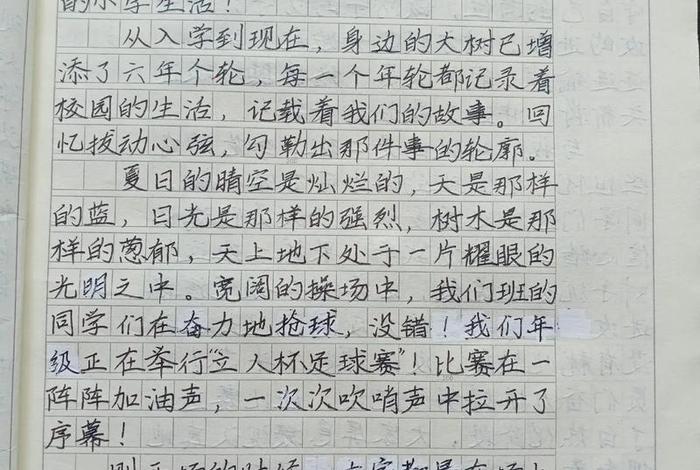 的小学生活！
从入学到现在，身边的大树已增
添了六年个轮，每一个年轮都记录着
校园的生活，记载着我们的故事。回
忆拨动心弦，勾勒出那件事的轮廓。
夏日的晴空是灿烂的，天是那样
的蓝，日光是那样的强烈，树木是那
样的葱郁，天上地下处于一片耀眼的
光明之中。宽阔的操场中，我们班的
同学们在奋力地抢球，没错！我们年
级正在举行“立人杯足球赛”！比赛在一
阵阵加油声，一次次吹哨声中拉开了
序幕！